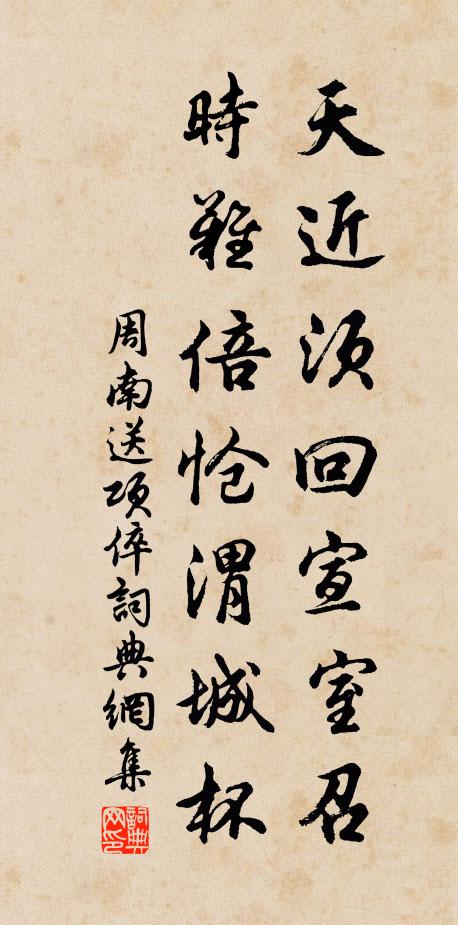 天近須回宣室召
時難倍愴渭城杯
周南送項倅詞典網集
詞典網印